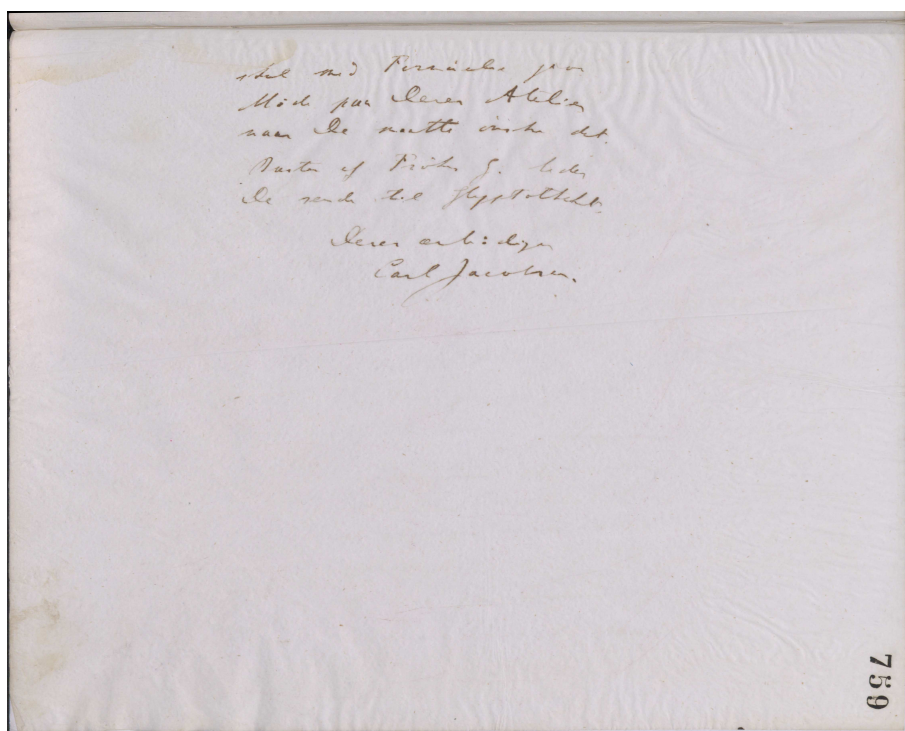 skal med Fornöielse give
Møde paa Deres Atelier
naar De maatte ønske det.
Busten af Frøken G. beder
De sende til Glyptotheket.
Deres ærb: digen
Carl Jacobsen.
759